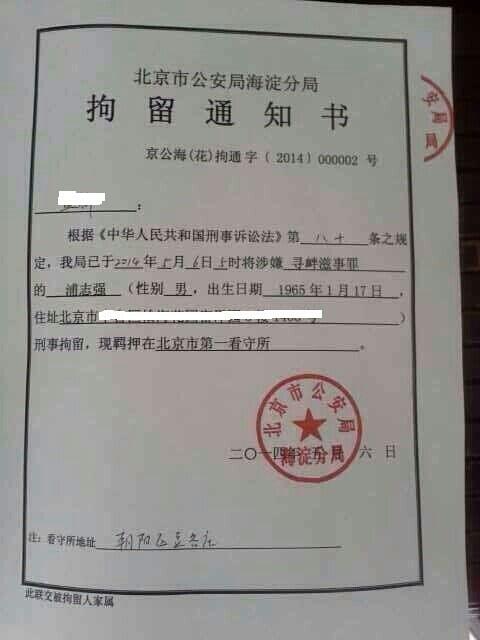 北京市公安局海淀分局
拘留通知书
京公海(花)拘通字〔2014〕000002 号
:
根据《中华人民共和国刑事诉讼法》第 八十 条之规
定，我局已于2014年5月6日 时将涉嫌 寻衅滋事罪
的 浦志强 （性别 男，出生日期 1965年1月17日，
住址北京市 ）
刑事拘留，现羁押在北京市第一看守所 。
北京市公安局
海淀分局
二〇一四年五月六日
注：看守所地址 朝阳区豆各庄
此联交被拘留人家属
安局
局